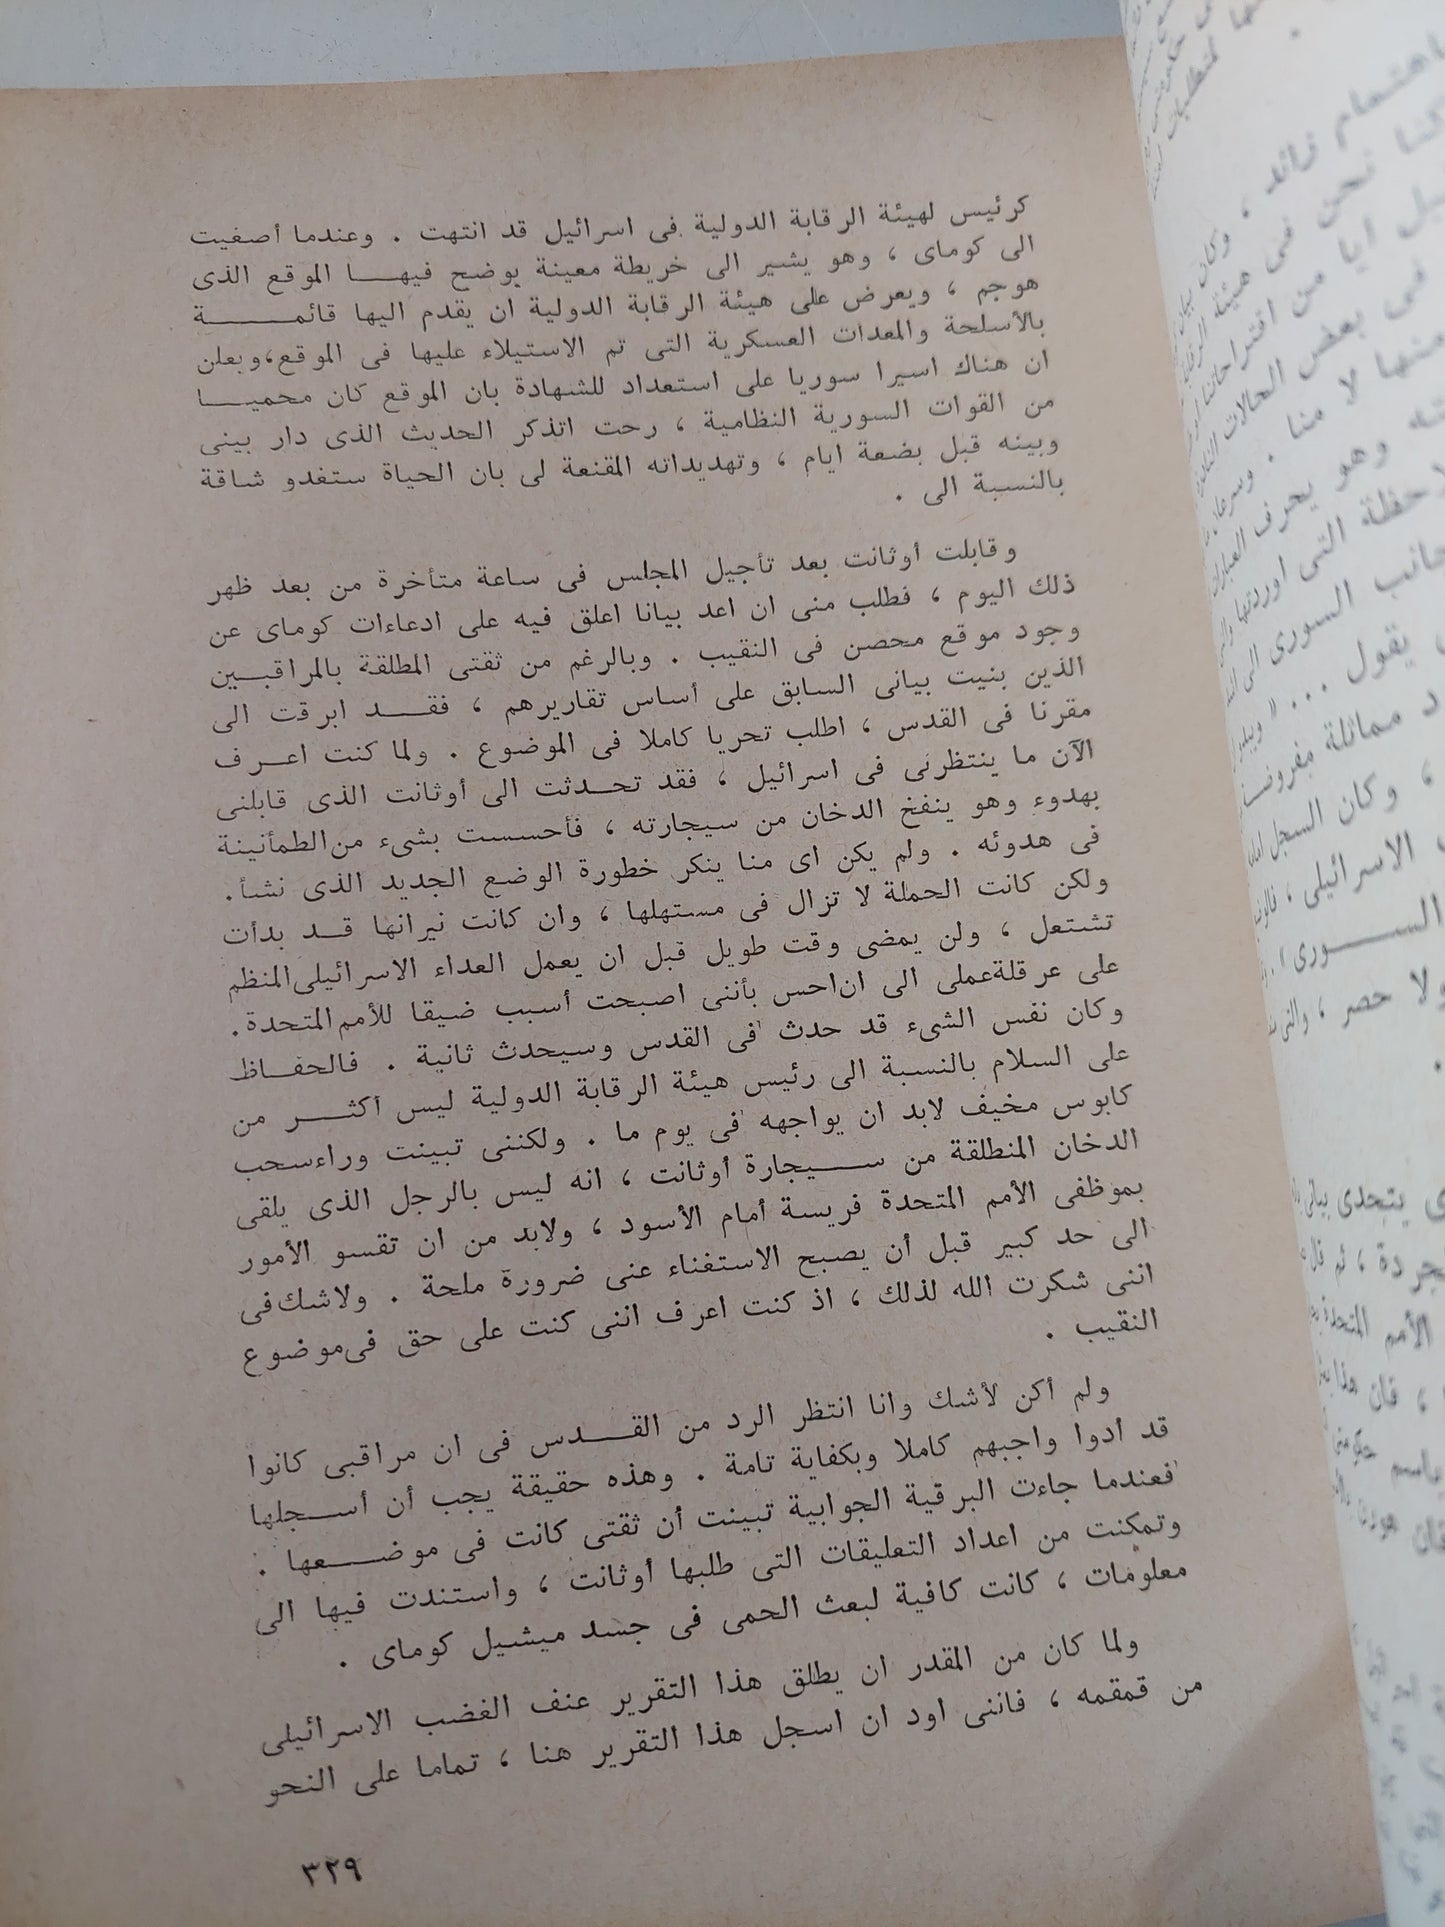 كرئيس لهيئة الرقابة الدولية فى اسرائيل قد انتهت . وعندما أصغيت
الى كوماى ، وهو يشير الى خريطة معينة يوضح فيهـــا الموقع الذى
هوجم ، ويعرض على هيئة الرقابة الدولية ان يقدم اليها قائمـــــة
بالأسلحة والمعدات العسكرية التى تم الاستيلاء عليها فى الموقع،ويعلن
ان هناك اسيرا سوريا على استعداد للشهادة بان الموقع كان محميـــا
من القوات السورية النظامية ، رحت اتذكر الحديث الذى دار بينى
وبينه قبل بضعة ايام ، وتهديداته المقنعة لى بان الحياة ستغدو شاقة
بالنسبة الى .
وقابلت أوثانت بعد تأجيل المجلس فى ساعة متأخرة من بعد ظهر
ذلك اليوم ، فطلب منى ان اعد بيانا اعلق فيه على ادعاءات كوماى عن
وجود موقع محصن فى النقيب . وبالرغم من ثقتى المطلقة بالمراقبــين
الذين بنيت بيانى السابق على أساس تقاريرهم ، فقـــد ابرقت الى
مقرنا فى القدس ، اطلب تحريا كاملا فى الموضوع . ولما كنت اعــرف
الآن ما ينتظرنى فى اسرائيل ، فقد تحــدثت الى أوثانت الذى قابلنى
بهدوء وهو ينفخ الدخان من سيجارته ، فأحسست بشىء من الطمأنينة
فى هدوئه . ولم يكن اى منا ينكر خطورة الوضع الجديد الذى نشأ .
ولكن كانت الحملة لا تزال فى مستهلها ، وان كانت نيرانها قــد بدأت
تشتعل ، ولن يمضى وقت طويل قبل ان يعمل العداء الاسرائيلى المنظم
على عرقلة عملى الى ان احس بأننى اصبحت أسبب ضيقا للأمم المتحدة .
وكان نفس الشىء قد حدث فى القدس وسيحدث ثانية . فالحفــاظ
على السلام بالنسبة الى رئيس هيئة الرقابة الدولية ليس أكثـــر من
كابوس مخيف لابد ان يواجهه فى يوم ما . ولكننى تبينت وراء سحب
الدخان المنطلقة من ســـيجارة أوثانت ، انه ليس بالرجل الذى يلقى
بموظفى الأمم المتحدة فريسة أمام الأسود ، ولابد من ان تقسو الأمور
الى حد كبير قبل أن يصبح الاستغناء عنى ضرورة ملحة . ولاشك فى
اننى شكرت الله لذلك ، اذ كنت اعرف اننى كنت على حق فى موضوع
النقيب .
ولم أكن لأشك وانا انتظر الرد من القـــدس فى ان مراقبى كانوا
قد أدوا واجبهم كاملا وبكفاية تامة . وهذه حقيقة يجب أن أســجلها
فعندما جاءت البرقية الجوابية تبينت أن ثقتى كانت فى موضـــعها .
وتمكنت من اعداد التعليقات التى طلبها أوثانت ، واستندت فيها الى
معلومات ، كانت كافية لبعث الحمى فى جسد ميشيل كوماى .
ولما كان من المقدر ان يطلق هذا التقرير عنف الغضب الاسرائيلى
من قمقمه ، فاننى اود ان اسجل هذا التقرير هنا ، تماما على النحو
٣٢٩